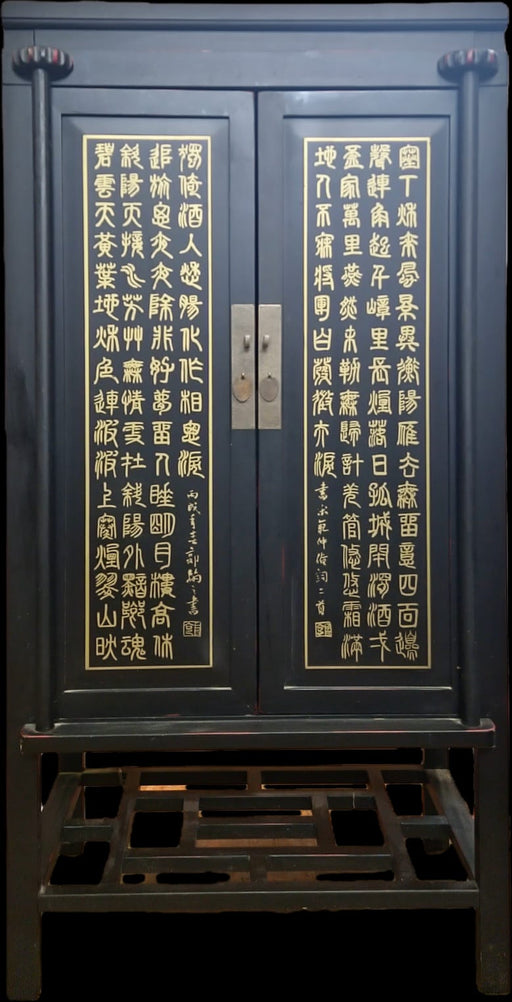 塞下秌來風景異衡陽雁去無留意四面邊
聲連角起千嶂里長煙落日孤城閉濁酒弌
盃家萬里燕然未勒無歸計羌管悠悠霜滿
地人不寐將軍白髮徵夫淚
書宋範仲淹詞二首
碧雲天黃葉地秌色連波波上寒煙翠山映
斜陽天接水芳艸無情更在斜陽外黯鄉魂
追旅思夜夜除非好夢留人睡明月樓高休
獨倚酒入愁腸化作相思淚
丙戌年 書